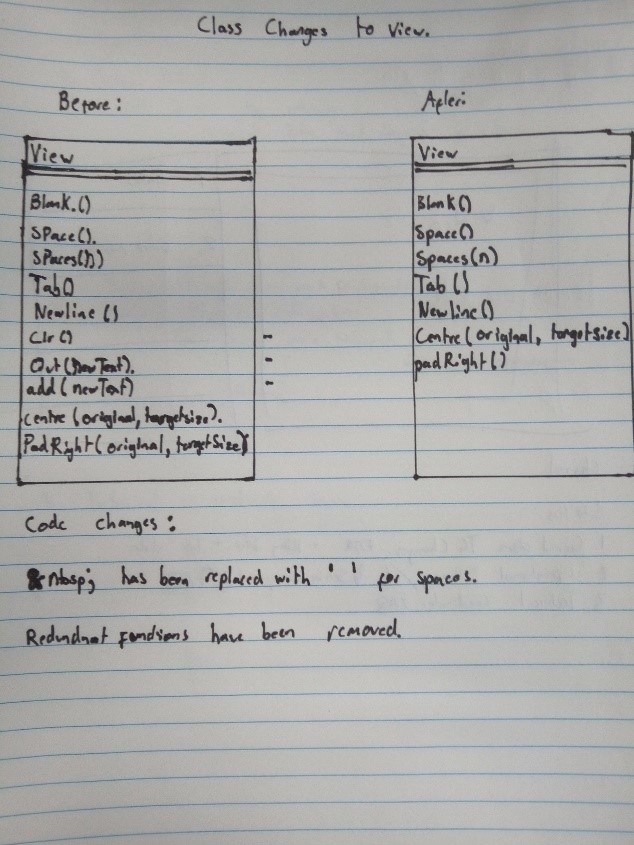 Class Changes to View.
Before:
View
Blank.()
SPace().
SPaces(n)
Tab()
Newline ()
Clr ()
-
Out(newText).
-
add(newText)
-
centre (original, targetsize).
PadRight(original, targetSize)
After:
View
Blank()
Space()
Spaces(n)
Tab ()
Newline()
Centre(original, targetsize)
padRight()
Code changes:
&nbsp; has been replaced with ' ' for spaces.
Redundnat functions have been removed.